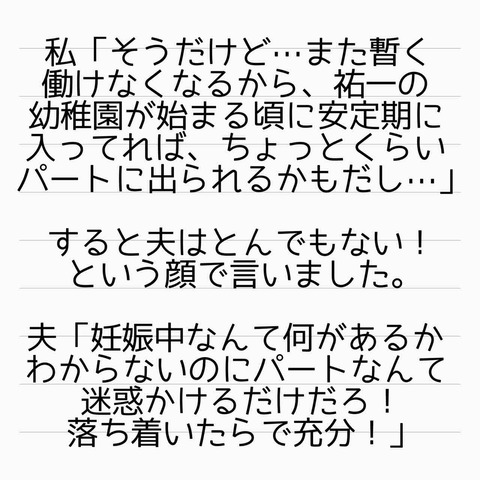 私「そうだけど…また暫く
働けなくなるから、祐一の
幼稚園が始まる頃に安定期に
入ってれば、ちょっとくらい
パートに出られるかもだし…」
すると夫はとんでもない！
という顔で言いました。
夫「妊娠中なんて何があるか
わからないのにパートなんて
迷惑かけるだけだろ！
落ち着いたらで充分！」